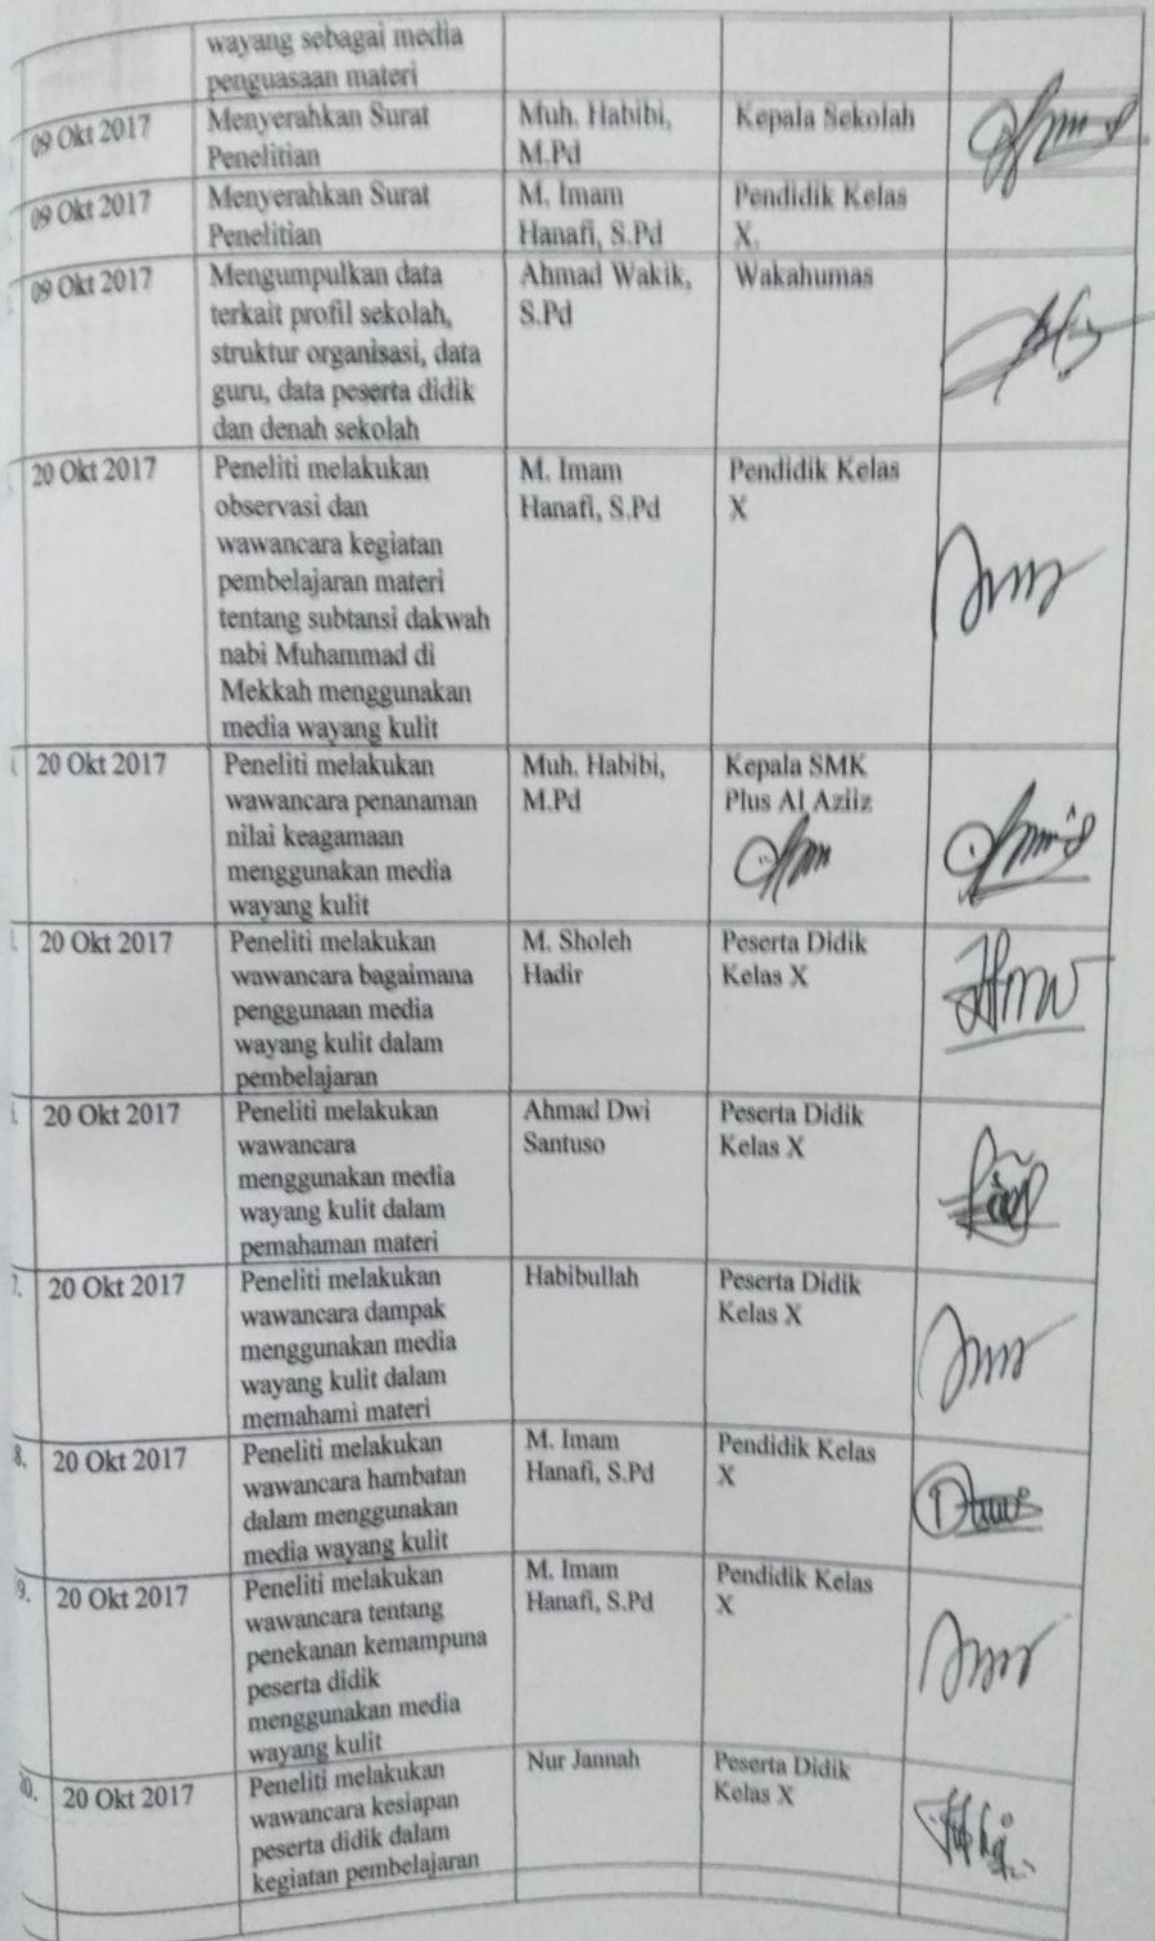 wayang sebagai media
penguasaan materi
09 Okt 2017
Menyerahkan Surat
Penelitian
Muh. Habibi,
M.Pd
Kepala Sekolah
09 Okt 2017
Menyerahkan Surat
Penelitian
M. Imam
Hanafi, S.Pd
Pendidik Kelas
X.
09 Okt 2017
Mengumpulkan data
terkait profil sekolah,
struktur organisasi, data
guru, data peserta didik
dan denah sekolah
Ahmad Wakik,
S.Pd
Wakahumas
20 Okt 2017
Peneliti melakukan
observasi dan
wawancara kegiatan
pembelajaran materi
tentang subtansi dakwah
nabi Muhammad di
Mekkah menggunakan
media wayang kulit
M. Imam
Hanafi, S.Pd
Pendidik Kelas
X
20 Okt 2017
Peneliti melakukan
wawancara penanaman
nilai keagamaan
menggunakan media
wayang kulit
Muh. Habibi,
M.Pd
Kepala SMK
Plus Al Aziiz
20 Okt 2017
Peneliti melakukan
wawancara bagaimana
penggunaan media
wayang kulit dalam
pembelajaran
M. Sholeh
Hadir
Peserta Didik
Kelas X
20 Okt 2017
Peneliti melakukan
wawancara
menggunakan media
wayang kulit dalam
pemahaman materi
Ahmad Dwi
Santuso
Peserta Didik
Kelas X
7.
20 Okt 2017
Peneliti melakukan
wawancara dampak
menggunakan media
wayang kulit dalam
memahami materi
Habibullah
Peserta Didik
Kelas X
8.
20 Okt 2017
Peneliti melakukan
wawancara hambatan
dalam menggunakan
media wayang kulit
M. Imam
Hanafi, S.Pd
Pendidik Kelas
X
9.
20 Okt 2017
Peneliti melakukan
wawancara tentang
penekanan kemampuna
peserta didik
menggunakan media
wayang kulit
M. Imam
Hanafi, S.Pd
Pendidik Kelas
X
20 Okt 2017
Peneliti melakukan
wawancara kesiapan
peserta didik dalam
kegiatan pembelajaran
Nur Jannah
Peserta Didik
Kelas X